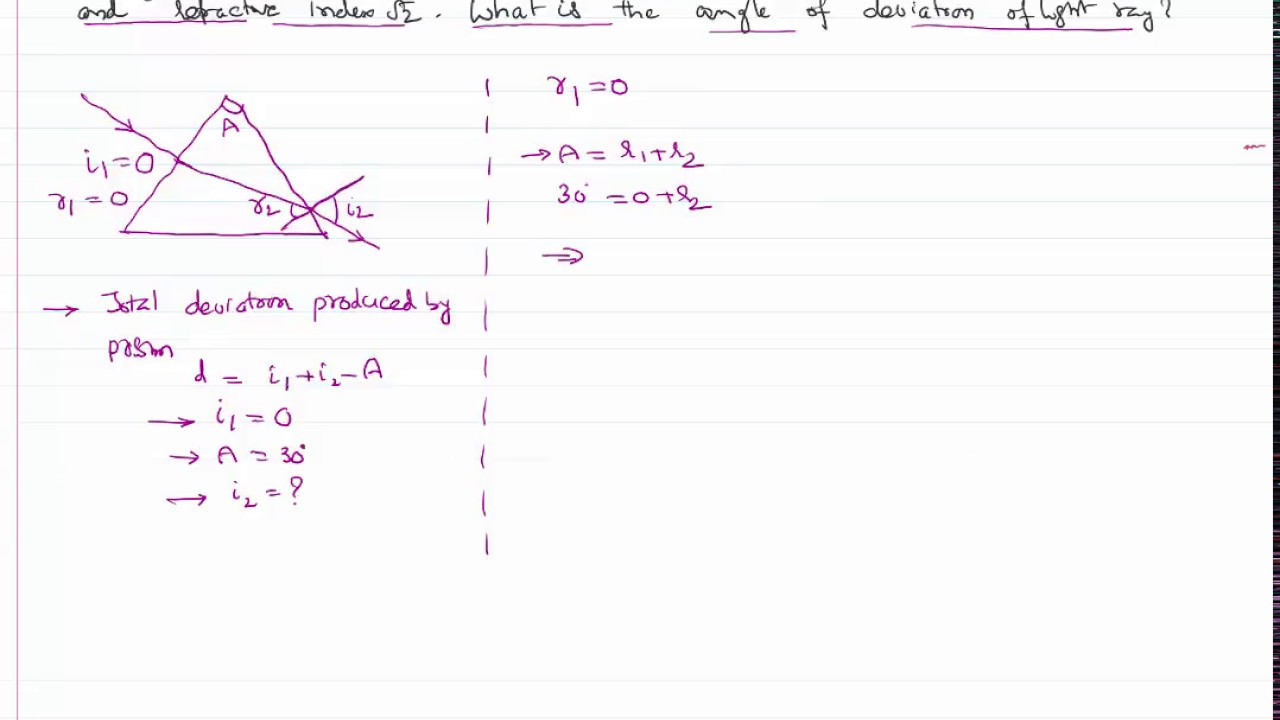 and refractive index √2. What is the angle of deviation of light ray?
A
i₁=0
r₁=0
r₂
i₂
→ Total deviation produced by
prism
d = i₁+i₂-A
→ i₁=0
→ A = 30°
→ i₂=?
r₁=0
→ A = r₁+r₂
30° = 0+r₂
⇒